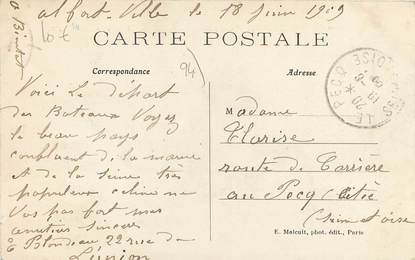 alfort-Ville le 18 juin 1909
CARTE POSTALE
Correspondance
Adresse
94
Voici Le départ
des Bateaux Voyez
le beau pays
confluent de la marne
et de la Seine très
populeux
Vos pas fort mes
amitiés sincères
E Blondeau 22 rue de
L'union
Madame
Clarise
route de Carière
au Pecq
(Seine et oise
LE PECQ
E. Malcuit, phot. édit., Paris